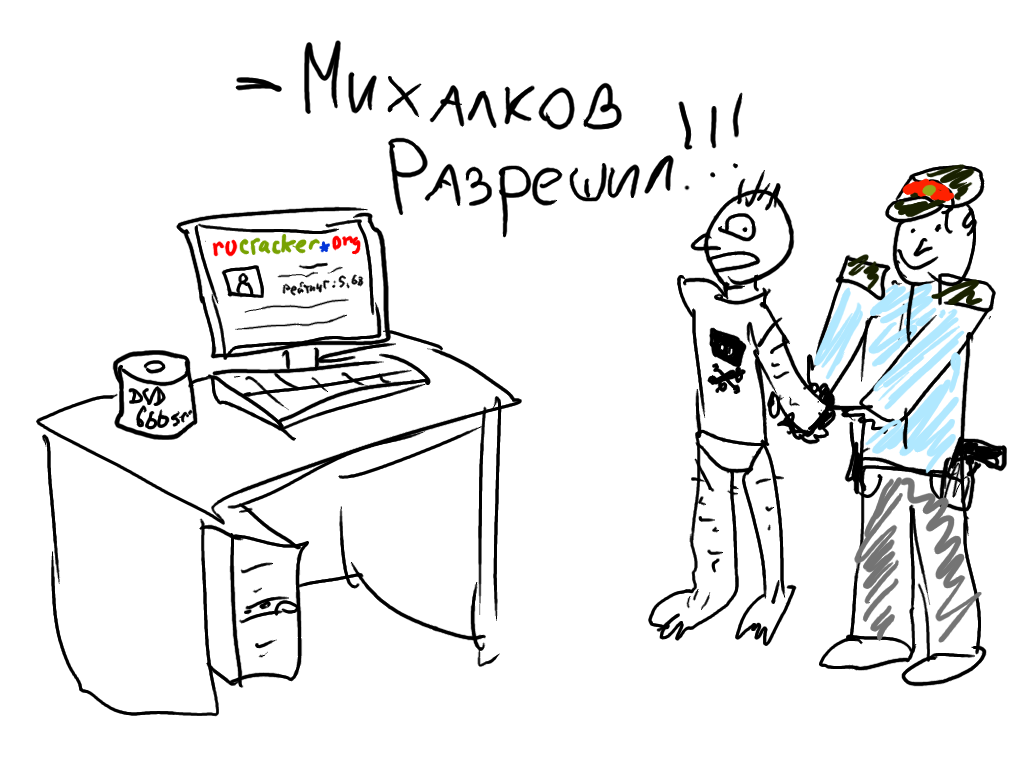 - Михалков
Разрешил!!!
rucracker.org
рейтинг: 5,63
DVD